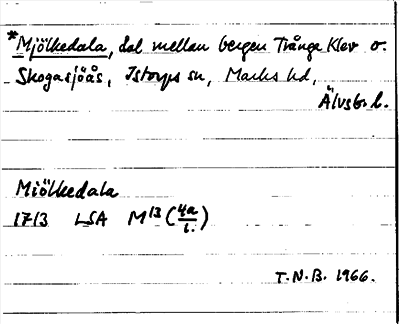 *Mjölkedala, dal mellan bergen Trånge Klev o.
Skogasjöås, Istorps sn, Marks hd,
Älvsb. l.
Miölkedala
1713 LSA M13 (4a/1.)
T.N.B. 1966.